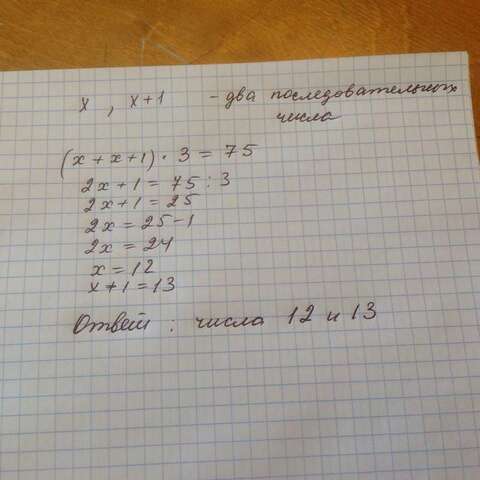 x , x+1 - два последовательных
числа
(x + x + 1) · 3 = 75
2x + 1 = 75 : 3
2x + 1 = 25
2x = 25 - 1
2x = 24
x = 12
x + 1 = 13
Ответ : числа 12 и 13